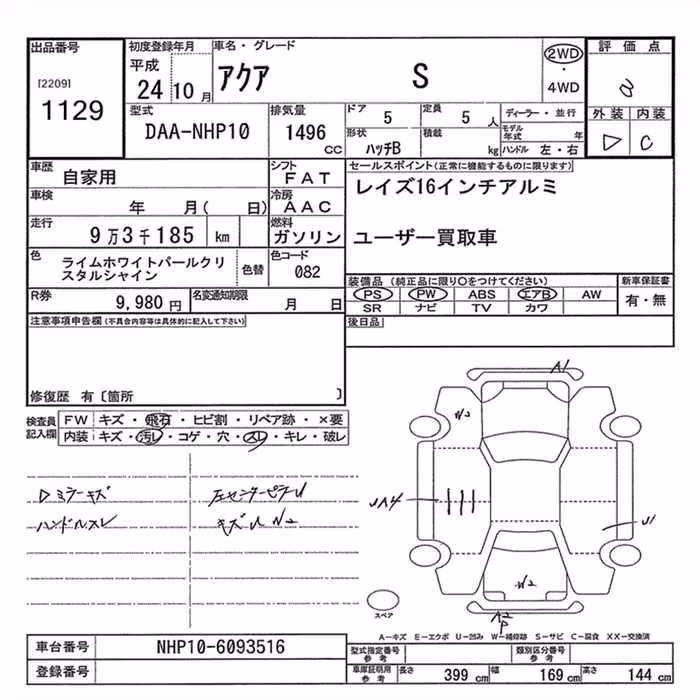 出品番号 初度登録年月 車名・グレード 2WD 評価点
[2209] 平成 アクア S ・
1129 24 10月 4WD
型式 排気量 ドア 5 定員 5人 ディーラー・並行 外装 内装
DAA-NHP10 1496 CC 形状 ハッチB 積載 kg モデル年式 年 C
ハンドル 左・右
車歴 自家用 シフト FAT セールスポイント(正常に機能するものに限ります)
車検 年 月( 日) 冷房 AAC レイズ16インチアルミ
走行 9万3千185 km 燃料 ガソリン ユーザー買取車
色 ライムホワイトパールクリスタルシャイン 色替 色コード 082
装備品 (純正品に限り○をつけてください) 新車保証書
R券 9,980円 名変通知期限 月 日 PS PW ABS エアB AW 有・無
SR ナビ TV カワ
注意事項申告欄(不具合内容等は具体的に記入して下さい) 後日品
修復歴 有〔箇所 〕
検査員記入欄 FW キズ・飛石・ヒビ割・リペア跡・×要
内装 キズ・汚レ・コゲ・穴・スレ・キレ・破レ
A1
W2
ミラーキズ
ハンドルスレ キズ W2
U1
W2
A2
スペア
A-キズ E-エクボ U-凹み W-補修跡 S-サビ C-腐食 XX-交換済
車台番号 NHP10-6093516 型式指定番号 参考 類別区分番号 参考
登録番号 車庫証明用 参考 長さ 399 cm 幅 169 cm 高さ 144 cm